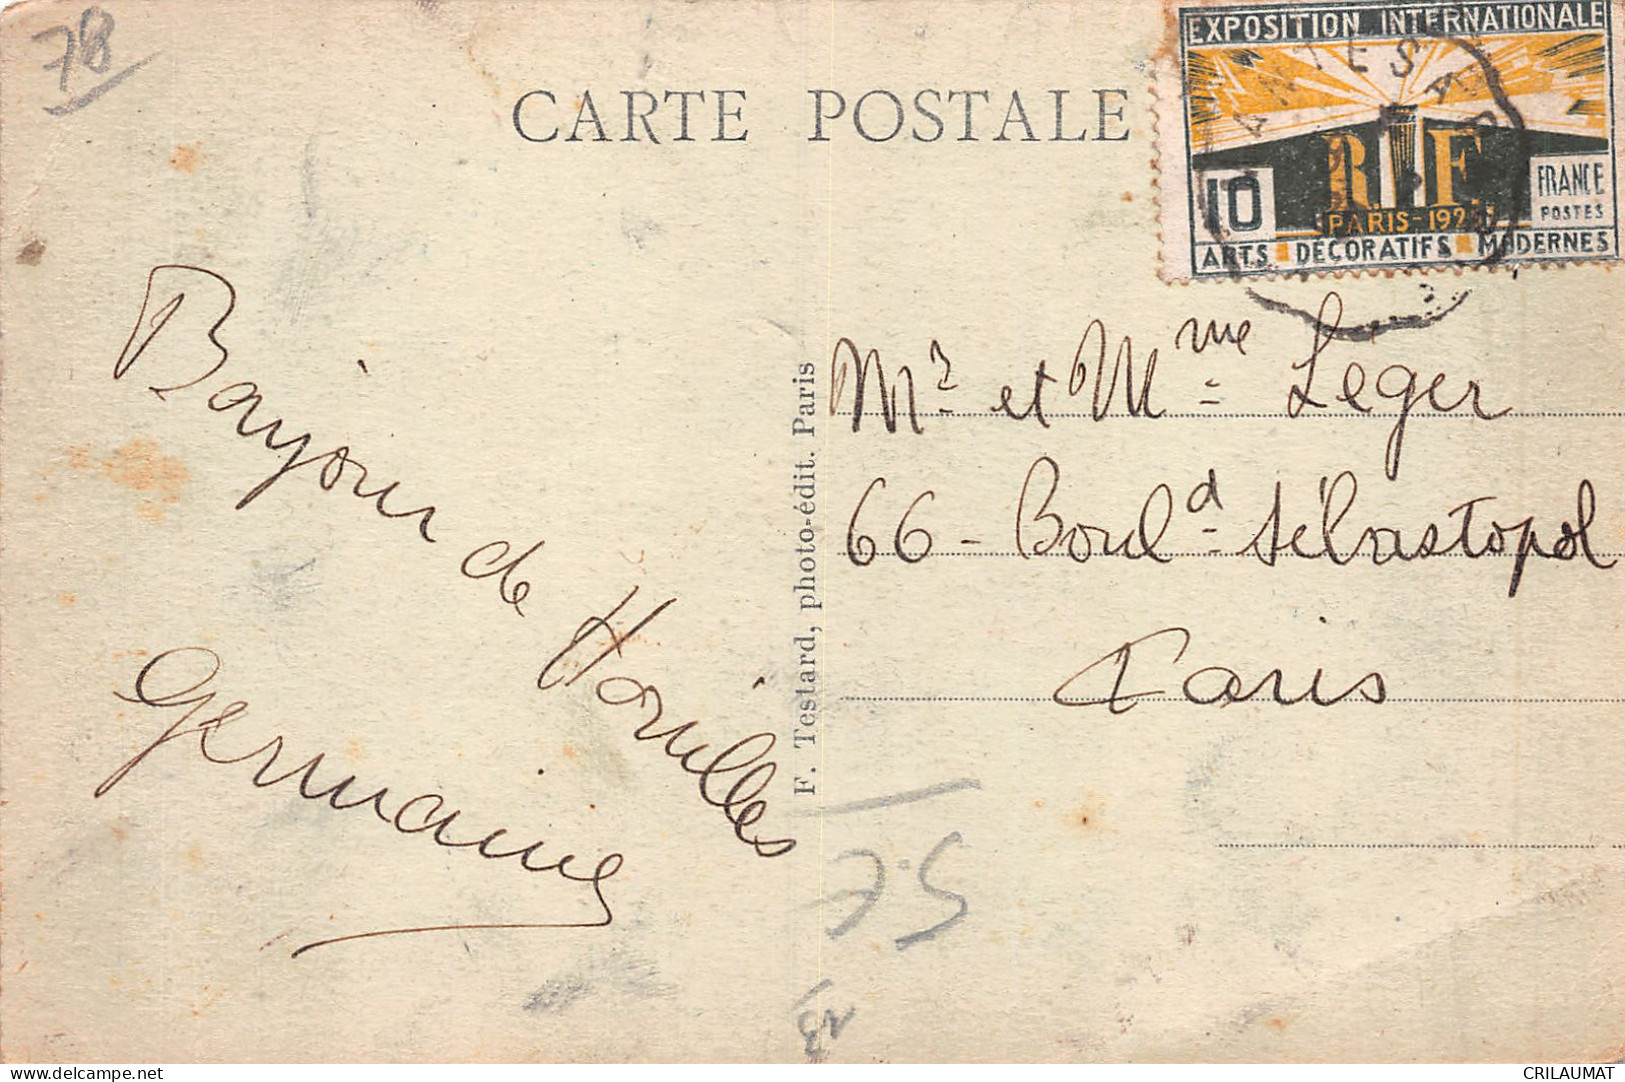 78
CARTE POSTALE
EXPOSITION INTERNATIONALE
RF
10
FRANCE
POSTES
PARIS-1925
ARTS DÉCORATIFS MODERNES
ANTES A P
Bonjour de Houilles
Germaine
F. Testard, photo-édit. Paris
Mr et Mme Leger
66 - Bould Sébastopol
Paris
13
CRILAUMAT